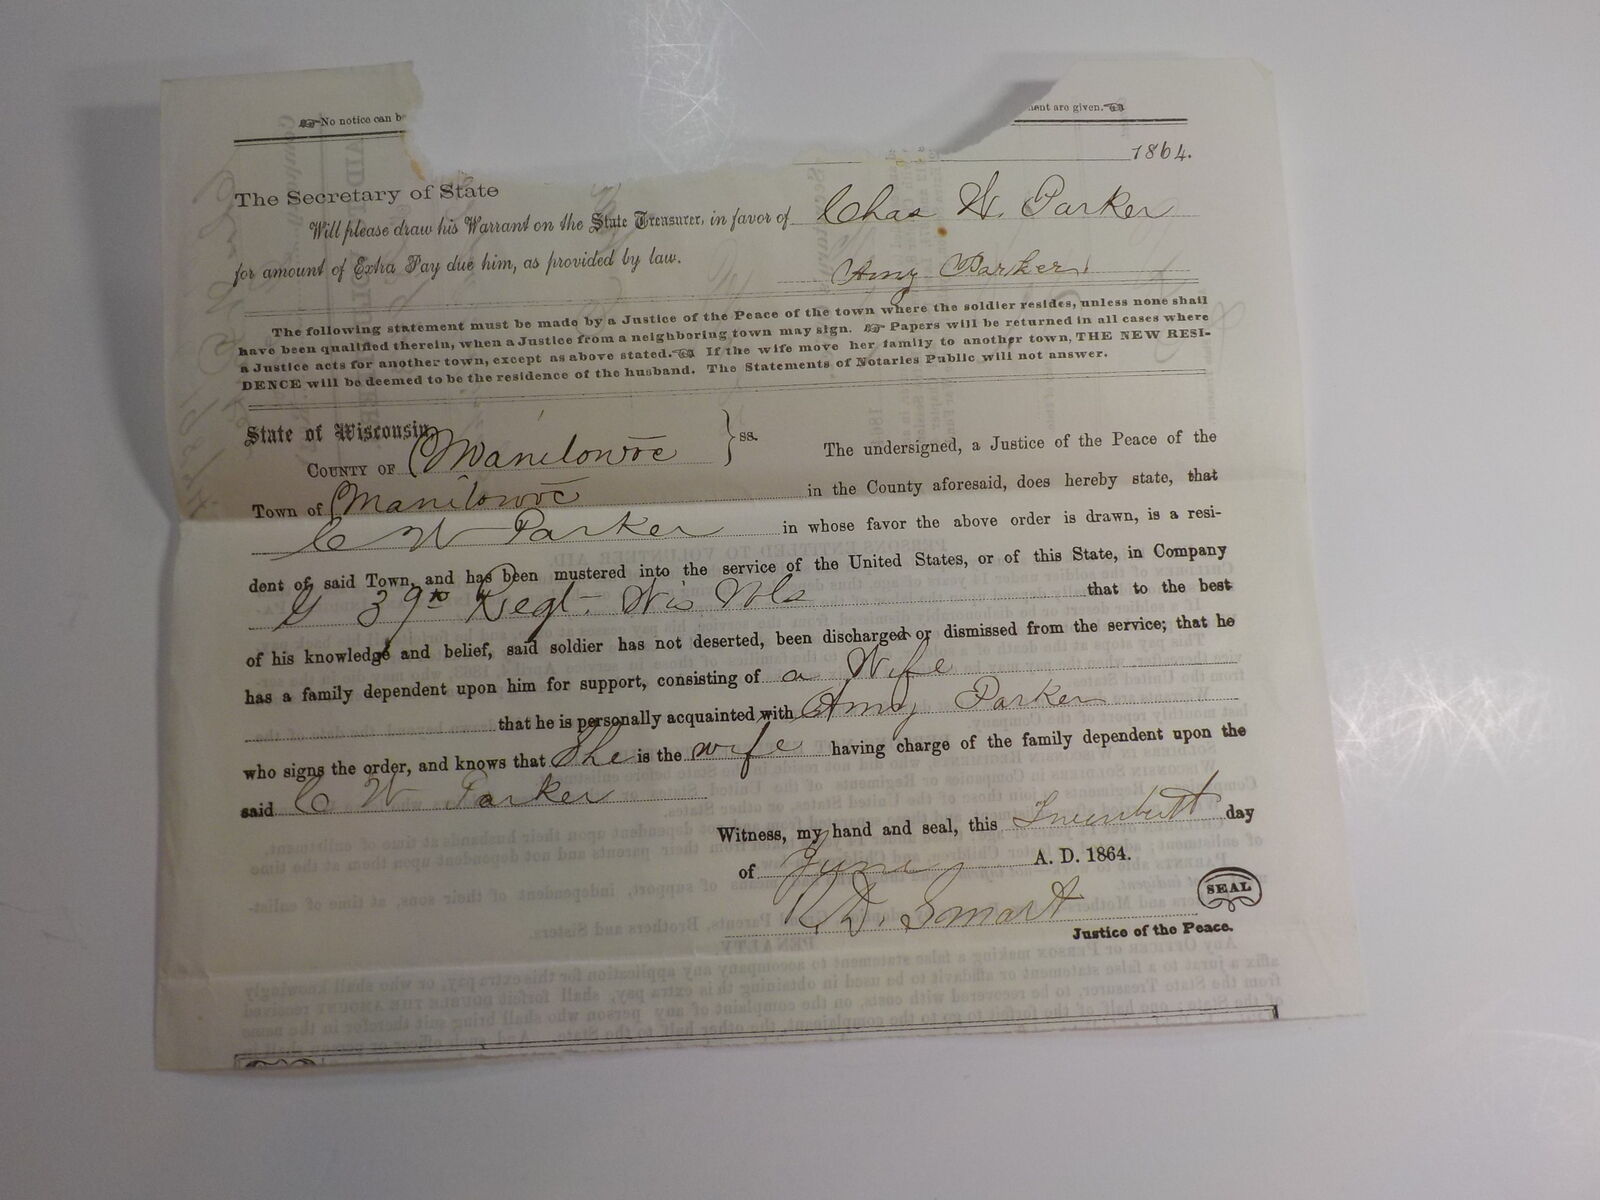 ☞No notice can b
ment are given.☜
1864.
The Secretary of State
Will please draw his Warrant on the State Treasurer, in favor of Chas W. Parker
for amount of Extra Pay due him, as provided by law. Amy Parker
The following statement must be made by a Justice of the Peace of the town where the soldier resides, unless none shall
have been qualified therein, when a Justice from a neighboring town may sign. ☞ Papers will be returned in all cases where
a Justice acts for another town, except as above stated.☜ If the wife move her family to another town, THE NEW RESI-
DENCE will be deemed to be the residence of the husband. The Statements of Notaries Public will not answer.
State of Wisconsin,
COUNTY OF Manitowoc } ss. The undersigned, a Justice of the Peace of the
Town of Manitowoc in the County aforesaid, does hereby state, that
C W Parker in whose favor the above order is drawn, is a resi-
dent of said Town, and has been mustered into the service of the United States, or of this State, in Company
39th Regt. Wis Vols that to the best
of his knowledge and belief, said soldier has not deserted, been discharged or dismissed from the service; that he
has a family dependent upon him for support, consisting of a Wife
that he is personally acquainted with Amy Parker
who signs the order, and knows that She is the wife having charge of the family dependent upon the
said C W Parker
Witness, my hand and seal, this day
of June A. D. 1864.
Smart SEAL
Justice of the Peace.